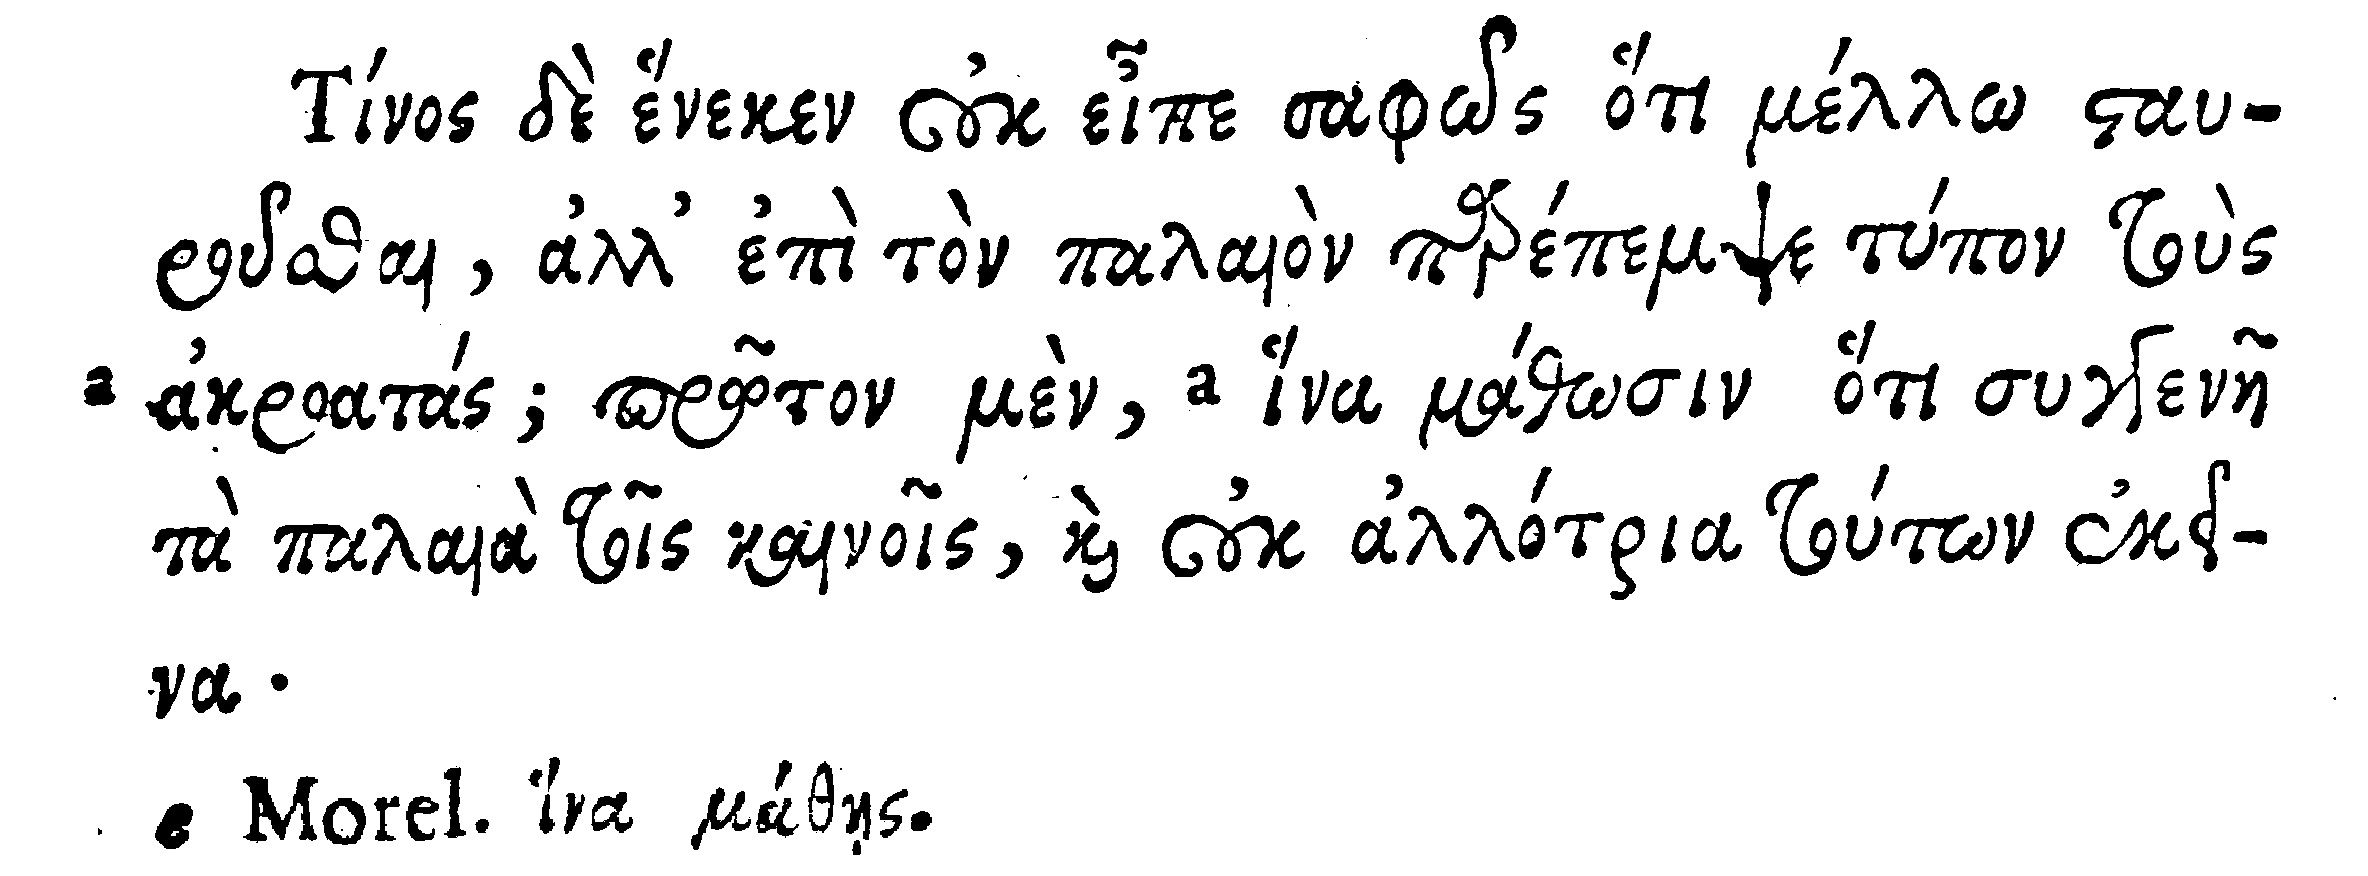 Τίνος δὲ ἕνεκεν οὐκ εἶπε σαφῶς ὅτι μέλλω σταυ-
ροῦσθαι, ἀλλ' ἐπὶ τὸν παλαιὸν παρέπεμψε τύπον τοὺς
a ἀκροατάς; πρῶτον μὲν, a ἵνα μάθωσιν ὅτι συγγενῆ
τὰ παλαιὰ τοῖς καινοῖς, καὶ οὐκ ἀλλότρια τούτων ἐκεῖ-
να ·
e Morel. ἵνα μάθῃς.